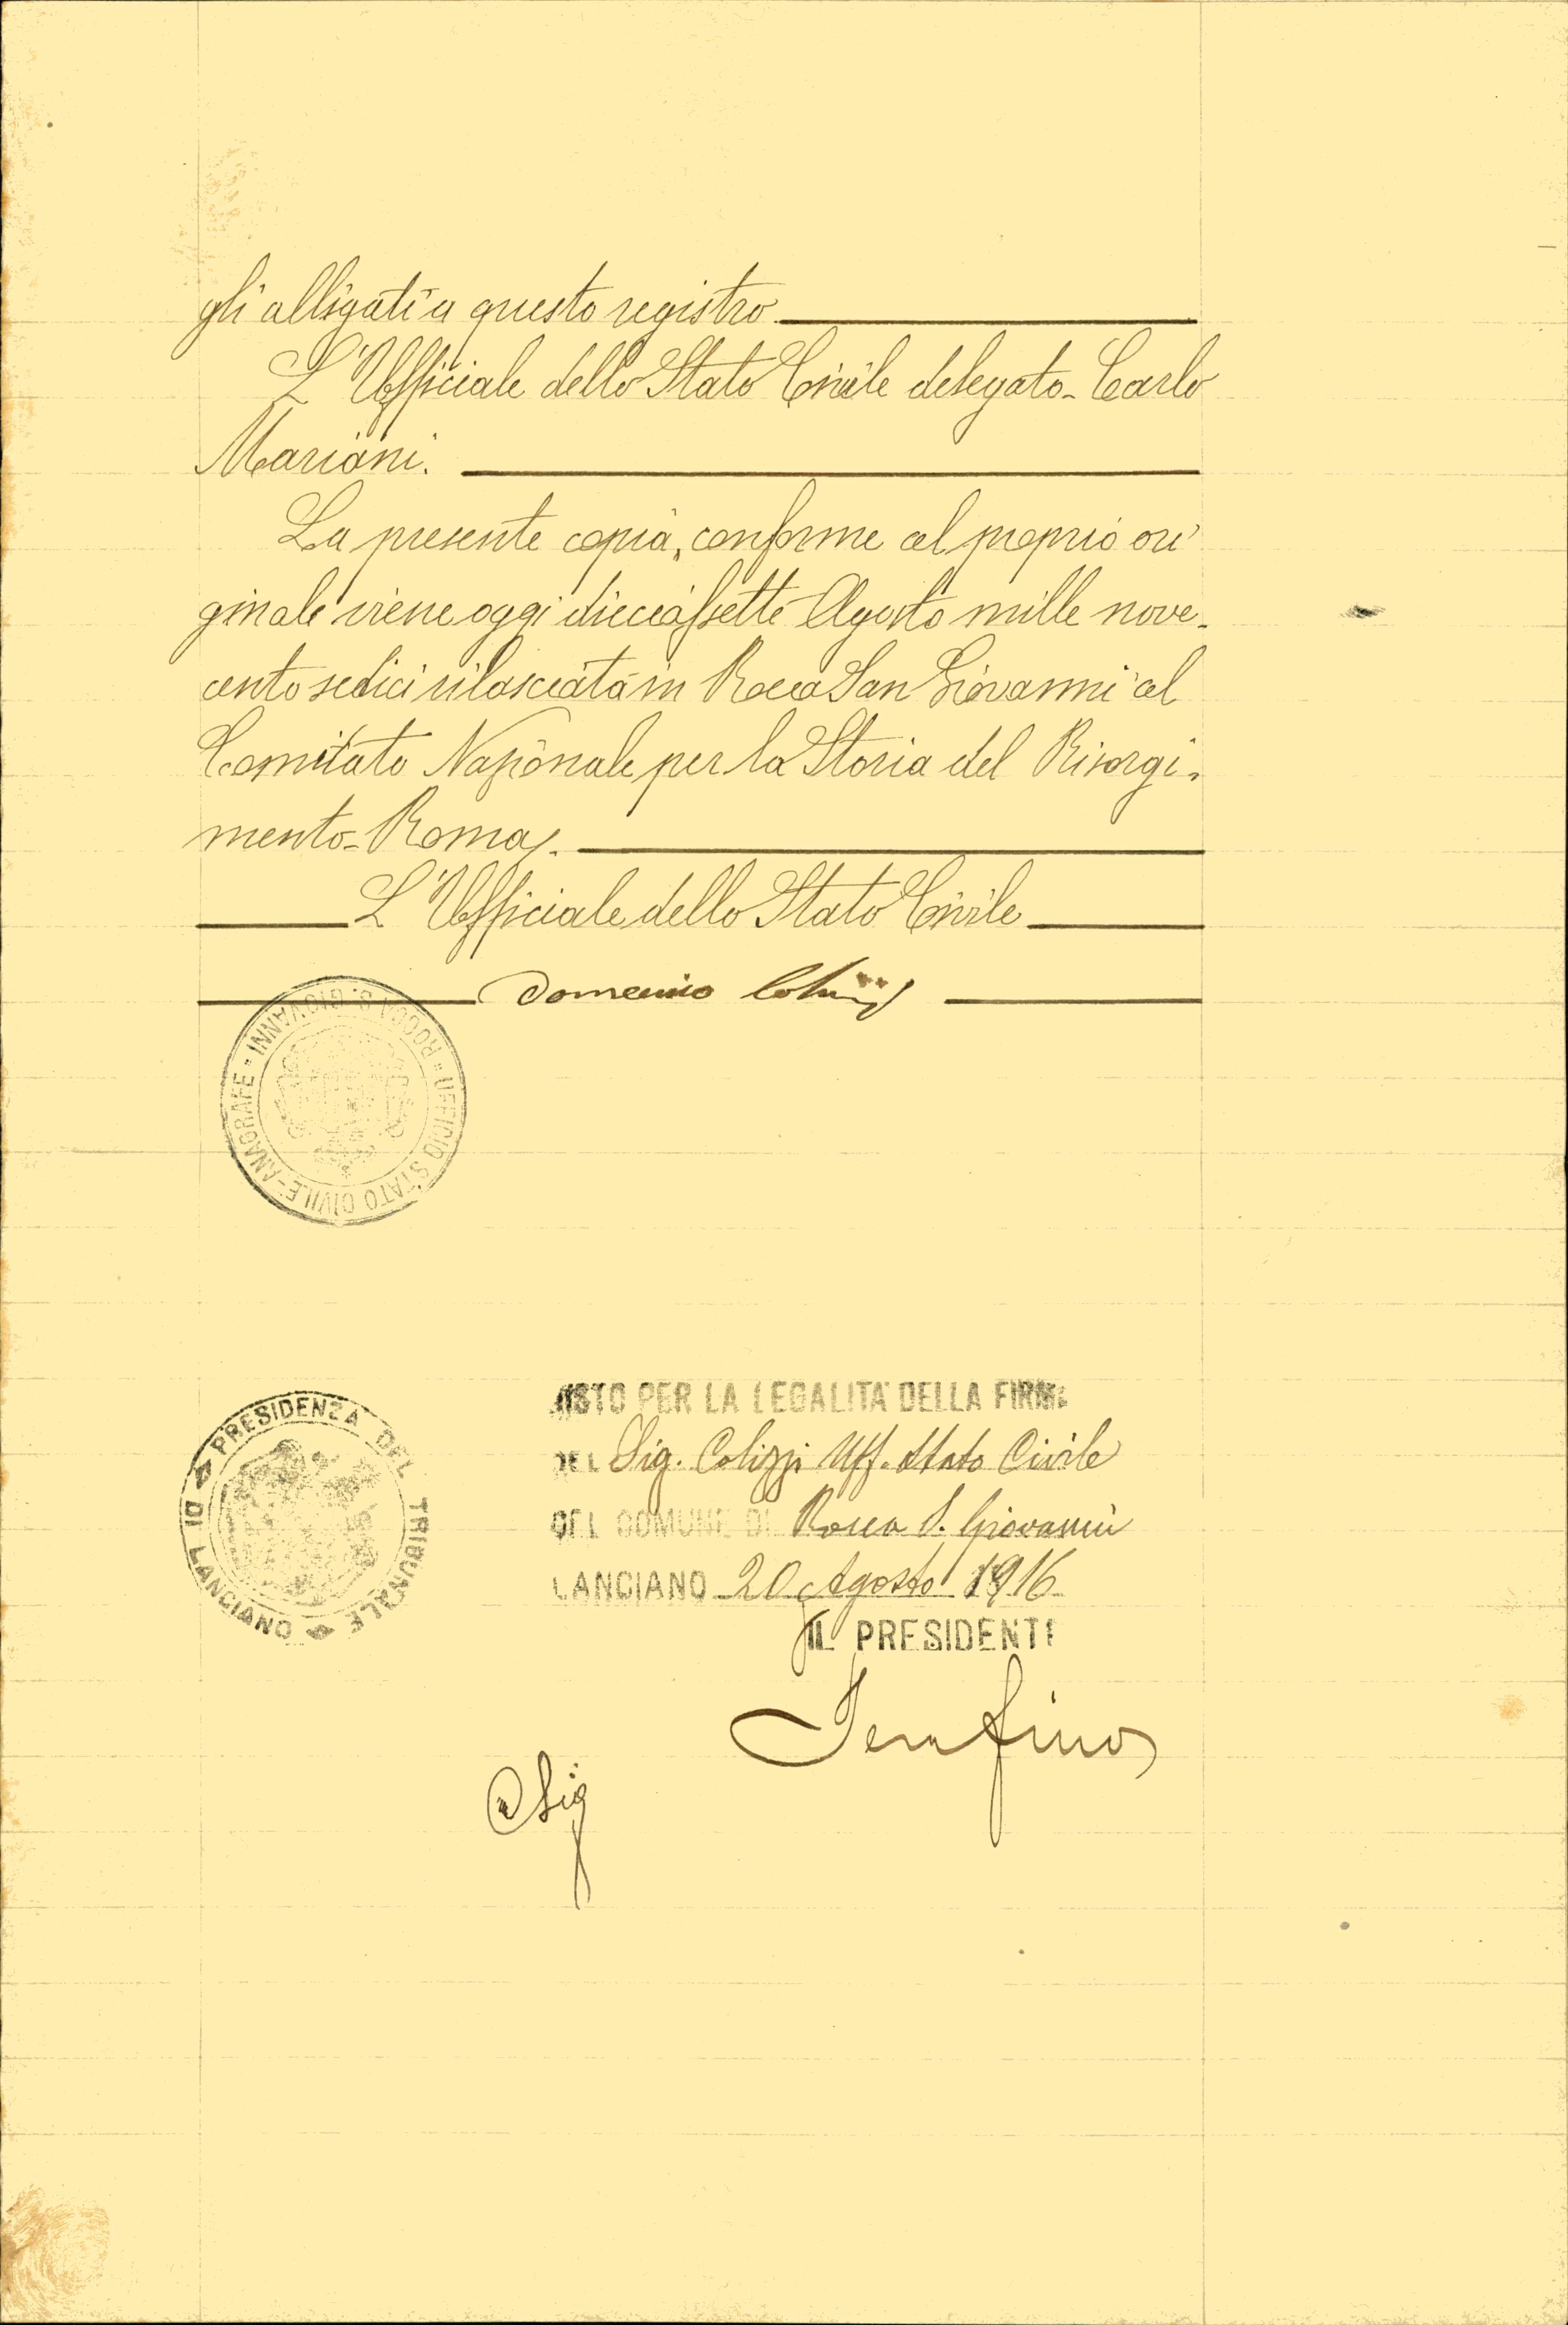 gli alligati a questo registro.
L'Ufficiale dello Stato Civile delegato- Carlo
Mariani.
La presente copia, conforme al proprio ori
ginale viene oggi dieciassette Agosto mille nove-
cento sedici rilasciata in Rocca San Giovanni al
Comitato Nazionale per la Storia del Risorgi-
mento- Roma.
L'Ufficiale dello Stato Civile
Domenico Colizzi
UFFICIO STATO CIVILE-ANAGRAFE = ROCCA S. GIOVANNI =
PRESIDENZA DEL TRIBUNALE DI LANCIANO
VISTO PER LA LEGALITA' DELLA FIRMA
DEL Sig. Colizzi Uff. Stato Civile
DEL COMUNE DI Rocca S. Giovanni
LANCIANO 20 Agosto 1916
IL PRESIDENTE
Serafino